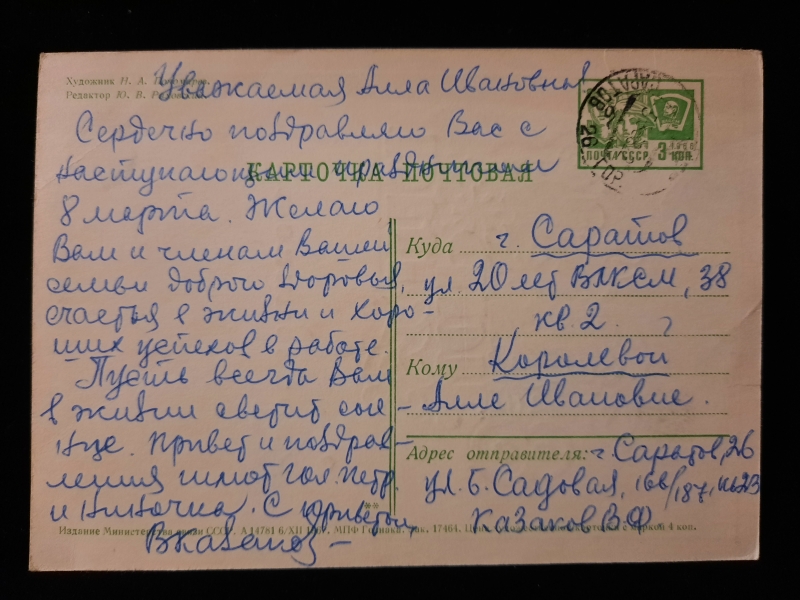 Художник Н. А.
Редактор Ю. В.
Уважаемая Алла Ивановна
Сердечно поздравляю Вас с
наступающим праздником
КАРТОЧКА ПОЧТОВАЯ
8 марта. Желаю
Вам и членам Вашей
семьи доброго здоровья,
счастья в жизни и хоро-
ших успехов в работе.
Пусть всегда Вам
в жизни светит сол-
нце. Привет и поздрав-
ления шлют Гал. Петр.
и Ниночка. С приветом
В Казаков
ПОЧТА СССР 3 КОП.
САРАТОВ 26
Куда г. Саратов
ул. 20 лет ВЛКСМ, 38
кв. 2.
Кому Королевой
Алле Ивановне.
Адрес отправителя: г. Саратов, 26
ул. Б. Садовая, 166/187, кв 23
Казаков В.Ф.
Издание Министерства связи СССР. А 14781 6/XII МПФ Гознака. Зак. 17464. Цена с маркой 4 коп.